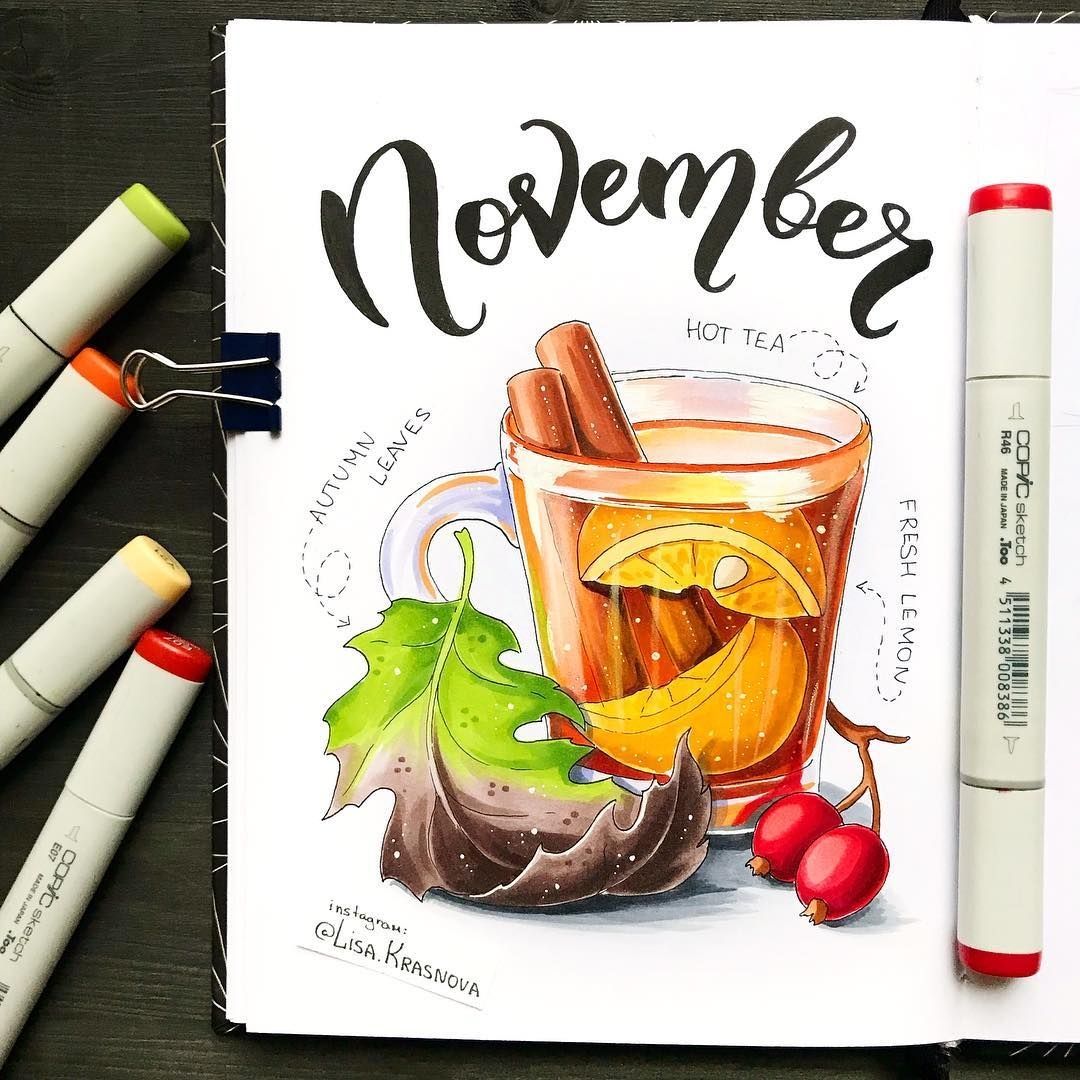 November
HOT TEA
AUTUMN
LEAVES
FRESH LEMON
instagram:
@LISA.KRASNOVA
COPIC sketch
R46 MADE IN JAPAN .Too 4 511338 008386
COPIC sketch
E07 MADE IN JAPAN .Too